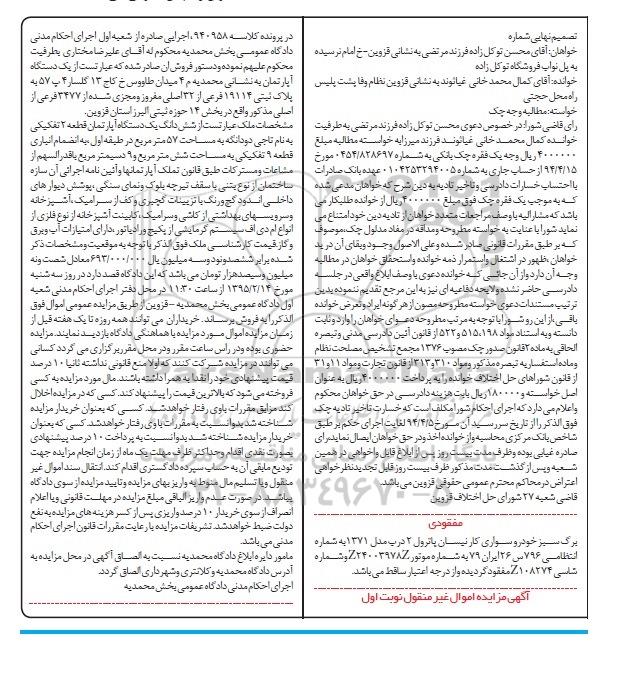 تصمیم نهایی شماره
خواهان: آقای محسن توکل زاده فرزند مرتضی به نشانی قزوین-خ امام نرسیده
به پل نواب فروشگاه توکل زاده
خوانده: آقای کمال محمد خانی غیاثوند به نشانی قزوین نظام وفا پشت پلیس
راه محل حجتی
خواسته: مطالبه وجه چک
رای قاضی شورا: در خصوص دعوی محسن توکل زاده فرزند مرتضی به طرفیت
خوانده کمال محمد خانی غیاثوند فرزند میرزابه خواسته مطالبه مبلغ
۴۰۰۰۰۰۰ ریال وجه یک فقره چک بانکی به شماره ۰۴۵۴/۸۲۸۶۹۷ مورخ
۹۴/۴/۱۵ از حساب جاری به شماره ۰۱۰۴۲۵۳۲۹۴۰۰۵ عهده بانک صادرات
با احتساب خسارات دادرسی و تاخیر تادیه به دین شرح که خواهان مدعی شده
که به موجب یک فقره چک فوق مبلغ ۴۰۰۰۰۰۰ ریال از خوانده طلبکار می
باشد که مشارالیه با وصف مراجعات متعدد خواهان از تادیه دین خود امتناع می
نماید شورا با عنایت به خواسته مطروحه و مداقه در مفاد مدلول چک، موصوف
که بر طبق مقررات قانونی صادر شده و علی الاصول وجود وبقای آن در ید
خواهان، ظهور در اشتغال واستمرار ذمه خوانده واستحقاق خواهان در مطالبه
وجه آن دارد و از آن جائی که خوانده دعوی با وصف ابلاغ واقعی در جلسه
دادرسی حاضر نشده ولایحه دفاعیه ای نیز به این مرجع تقدیم ننموده بدین
ترتیب مستندات دعوی خواسته مطروحه مصون از هر گونه ایراد و تعرض خوانده
باقی، از این رو شورا با توجه به مرتب مطروحه دعوای خواهان را وارد وثابت
دانسته و به استناد مواد ۱۹۸، ۵۱۵ و ۵۲۲ از قانون آئین دادرسی مدنی وتبصره
الحاقی به ماده ۲ قانون صدور چک مصوب ۱۳۷۶ مجمع تشخیص مصلحت نظام
وماده استفساریه تبصره مذکور ومواد ۳۱۰ و ۳۱۳ از قانون تجارت ومواد ۱۱ و ۳۱
از قانون شوراهای حل اختلاف خوانده را به پرداخت ۴۰۰۰۰۰۰ ریال به عنوان
اصل خواسته و ۱۸۰۰۰۰ ریال بابت هزینه دادرسی در حق خواهان محکوم
واعلام می دارد که اجرای احکام شورا مکلف است که خسارت تاخیر تادیه چک
فوق الذکر را از تاریخ سررسید آن مورخ ۹۴/۴/۵ لغایت اجرای حکم بر طبق
شاخص بانک مرکزی محاسبه و از خوانده اخذ و در حق خواهان ایصال نماید رای
صادره غیابی بوده وظرف مدت بیست روز پس از ابلاغ قابل واخواهی در همین
شعبه وپس از گذشت مدت مذکور ظرف بیست روز قابل تجدید نظر خواهی
اعتراض در محاکم محترم عمومی حقوقی قزوین می باشد.
قاضی شعبه ۲۷ شورای حل اختلاف قزوین
مفقودی
برگ سبز خودرو سواری کار نیسان پاترول ۲ درب مدل ۱۳۷۱ به شماره
انتظامی ۷۹۶ س ۲۶ ایران ۷۹ به شماره موتور Z۲۴۰۰۳۹۷۸Z وشماره
شاسی Z۱۰۸۲۷۴ مفقود گردیده و از درجه اعتبار ساقط می باشد.
آگهی مزایده اموال غیر منقول نوبت اول
در پرونده کلاسه ۹۴۰۹۵۸، اجرایی صادره از شعبه اول اجرای احکام مدنی
دادگاه عمومی بخش محمدیه محکوم له آقای علیرضا مختاری بطرفیت
محکوم علیهم نموده ودستور فروش ان صادر شده که عبارتست از یک دستگاه
آپارتمان به نشانی محمدیه م ۴ میدان طاووس خ کاج ۱۳ گلسار ۴ پ ۵۷ به
پلاک ثبتی ۱۹۱۱۴ فرعی از ۳۲ اصلی مفروز ومجزی شده از ۳۴۷۷ فرعی از
اصلی مذکور واقع در بخش ۱۴ حوزه ثبتی البرز استان قزوین.
مشخصات ملک عبارتست از شش دانگ یک دستگاه آپارتمان قطعه ۲ تفکیکی
به نام تاجی دودانگه به مساحت ۵۷ متر مربع در طبقه اول، به انضمام انباری
قطعه ۹ تفکیکی به مساحت شش متر مربع و ۹ دسیمتر مربع باقدرالسهم از
مشاعات ومشترکات طبق قانون تملک آپارتمانها وآئین نامه اجرائی آن سازه
ساختمان از نوع بتنی با سقف تیرچه بلوک ونمای سنگی، پوشش دیوار های
داخلی اندود گچ ورنگ با تزیینات گچبری وکف از سرامیک، آشپزخانه
وسرویسهای بهداشتی از کاشی وسرامیک، کابینت آشپزخانه از نوع فلزی از
انواع ام دی اف سیستم گرمایشی از پکیج و رادیاتور، دارای امتیازات آب وبرق
وگاز. قیمت کارشناسی ملک فوق الذکر با توجه به موقعیت ومشخصات ذکر
شده برابر ششصد ونود وسه میلیون ریال ۶۹۳/۰۰۰/۰۰۰ معادل شصت ونه
میلیون وسیصد هزار تومان می باشد که این دادگاه قصد دارد در روز سه شنبه
مورخ ۱۳۹۵/۲/۱۴ از ساعت ۱۱:۳۰ در محل دفتر اجرای احکام مدنی شعبه
اول دادگاه عمومی بخش محمدیه - قزوین از طریق مزایده عمومی اموال فوق
الذکر را به فروش برساند. خریداران می توانند همه روزه تا یک هفته قبل از
زمان مزایده اموال مورد مزایده با هماهنگی دادگاه بازدید نمایند. مزایده
حضوری بوده ودر راس ساعت مقرر ودر محل مقرر برگزار می گردد کسانی
می توانند در مزایده شرکت کنند که اولا منع قانونی نداشته ثانیا ۱۰ درصد
قیمت پیشنهادی خود را نقدا به همراه داشته باشند. مال مورد مزایده به کسی
فروخته می شود که بالاترین قیمت را پیشنهاد کند. کسی که در مزایده اخلال
کند مطابق مقررات باوی رفتار خواهد شد. کسی که بعنوان خریدار مزایده
شناخته شد بدوا نسبت به مقررات باوی رفتار خواهد شد. کسی که بعنوان
خریدار مزایده شناخته شد بدوا نسبت به پرداخت ۱۰ درصد پیشنهادی
بصورت نقدی اقدام وحداکثر ظرف مهلت یک ماه از زمان انجام مزایده جهت
تودیع مابقی آن به حساب سپرده دادگستری اقدام کند. انتقال سند اموال غیر
منقول ویا تسلیم مال منوط به واریز بهای مزایده وتایید مزایده از سوی دادگاه
میباشد در صورت عدم واریز الباقی مبلغ مزایده در مهلت قانونی ویا اعلام
انصراف از سوی خریدار ۱۰ درصد واریزی پس از کسر هزینه های مزایده به نفع
دولت ضبط خواهد شد. تشریفات مزایده با رعایت مقررات قانون اجرای احکام
مدنی می باشد.
مامور دایره ابلاغ دادگاه محمدیه نسبت به الصاق آگهی در محل مزایده به
آدرس دادگاه محمدیه و کلانتری وشهرداری الصاق گردد.
اجرای احکام مدنی دادگاه عمومی بخش محمدیه